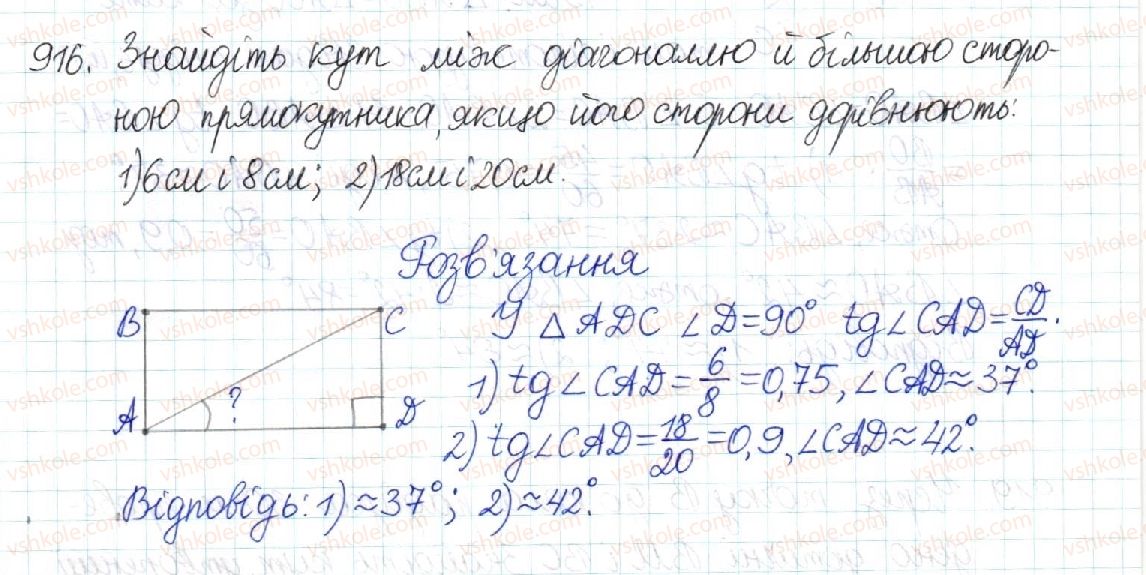 916. Знайдіть кут між діагоналлю й більшою сторо-
ною прямокутника, якщо його сторони дорівнюють:
1) 6 см і 8 см; 2) 18 см і 20 см.
Розв'язання
B C У △ ADC ∠D = 90° tg∠CAD = CD/AD.
1) tg∠CAD = 6/8 = 0,75, ∠CAD ≈ 37°.
A ? D 2) tg∠CAD = 18/20 = 0,9, ∠CAD ≈ 42°.
Відповідь: 1) ≈ 37°; 2) ≈ 42°.
vshkole.com